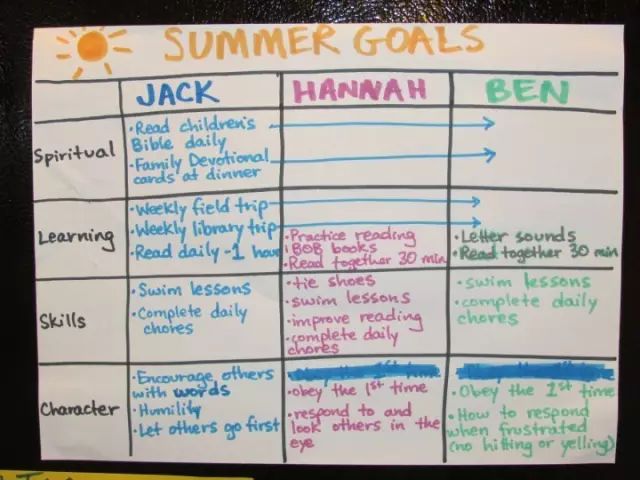 SUMMER GOALS
JACK
HANNAH
BEN
Spiritual
•Read children's
Bible daily
•Family Devotional
cards at dinner
Learning
•Weekly field trip
•Weekly library trip
•Read daily - 1 hour
•Practice reading
BOB books
•Read together 30 min
•Letter sounds
•Read together 30 min
Skills
•Swim lessons
•Complete daily
chores
•tie shoes
•swim lessons
•improve reading
•complete daily
chores
•swim lessons
•complete daily
chores
Character
•Encourage others
with words
•Humility
•Let others go first
•obey the 1st time
•respond to and
look others in the
eye
•Obey the 1st time
•How to respond
when frustrated
(no hitting or yelling)